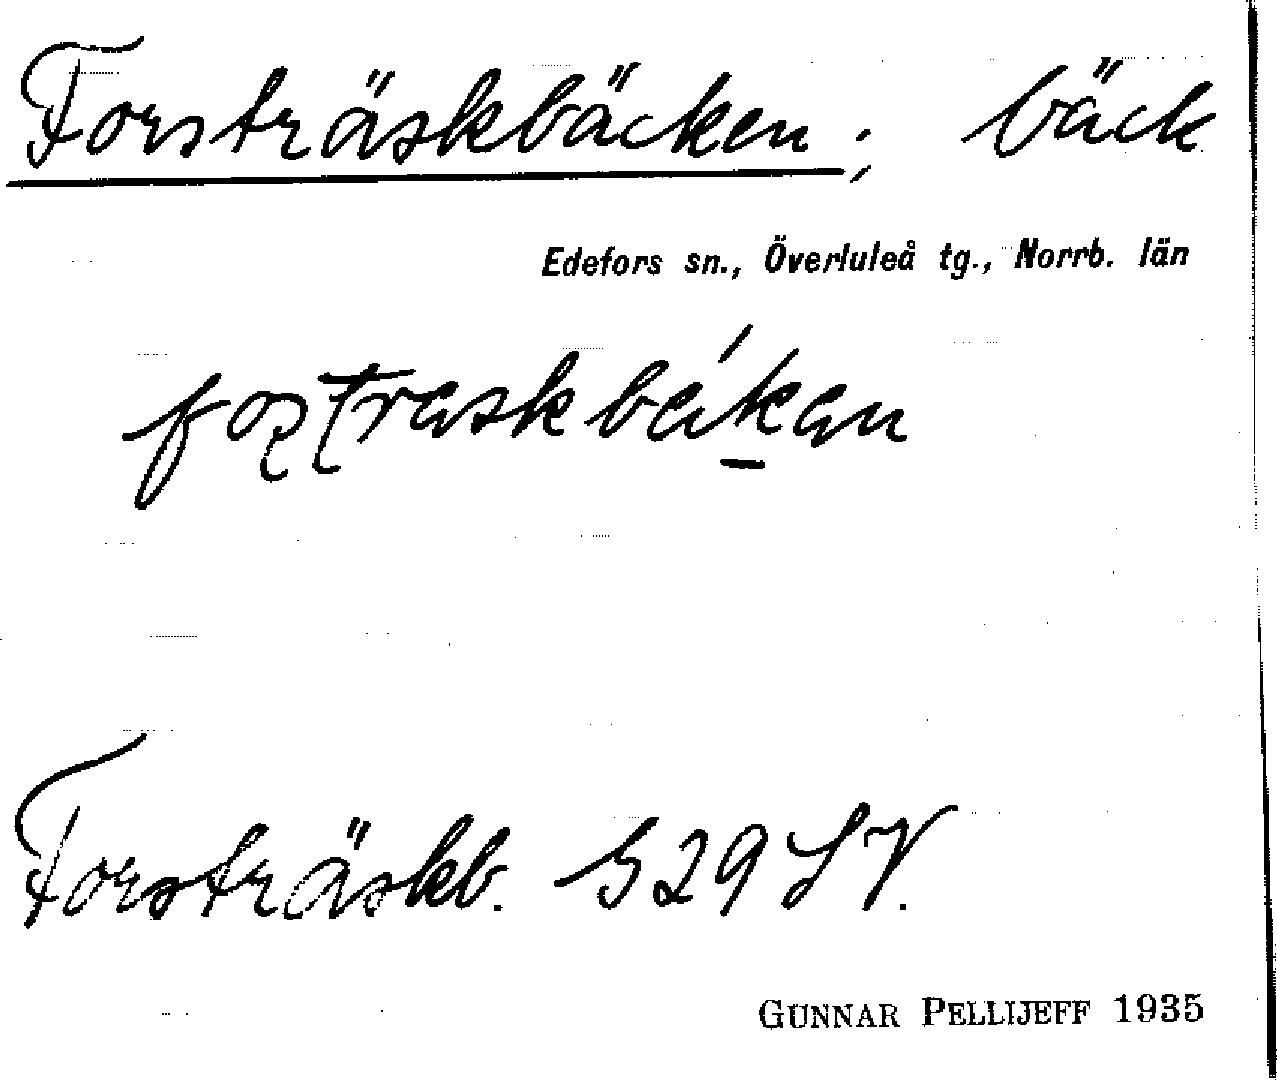 Forsträskbäcken; bäck
Edefors sn., Överluleå tg., Norrb. län
Forsträskb. S29SV.
GUNNAR PELLIJEFF 1935